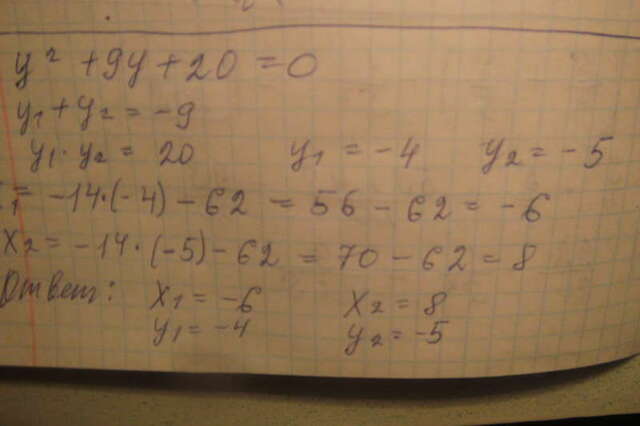 y² + 9y + 20 = 0
y₁ + y₂ = -9
y₁ · y₂ = 20 y₁ = -4 y₂ = -5
₁ = -14·(-4) - 62 = 56 - 62 = -6
x₂ = -14·(-5) - 62 = 70 - 62 = 8
Ответ: x₁ = -6 x₂ = 8
y₁ = -4 y₂ = -5